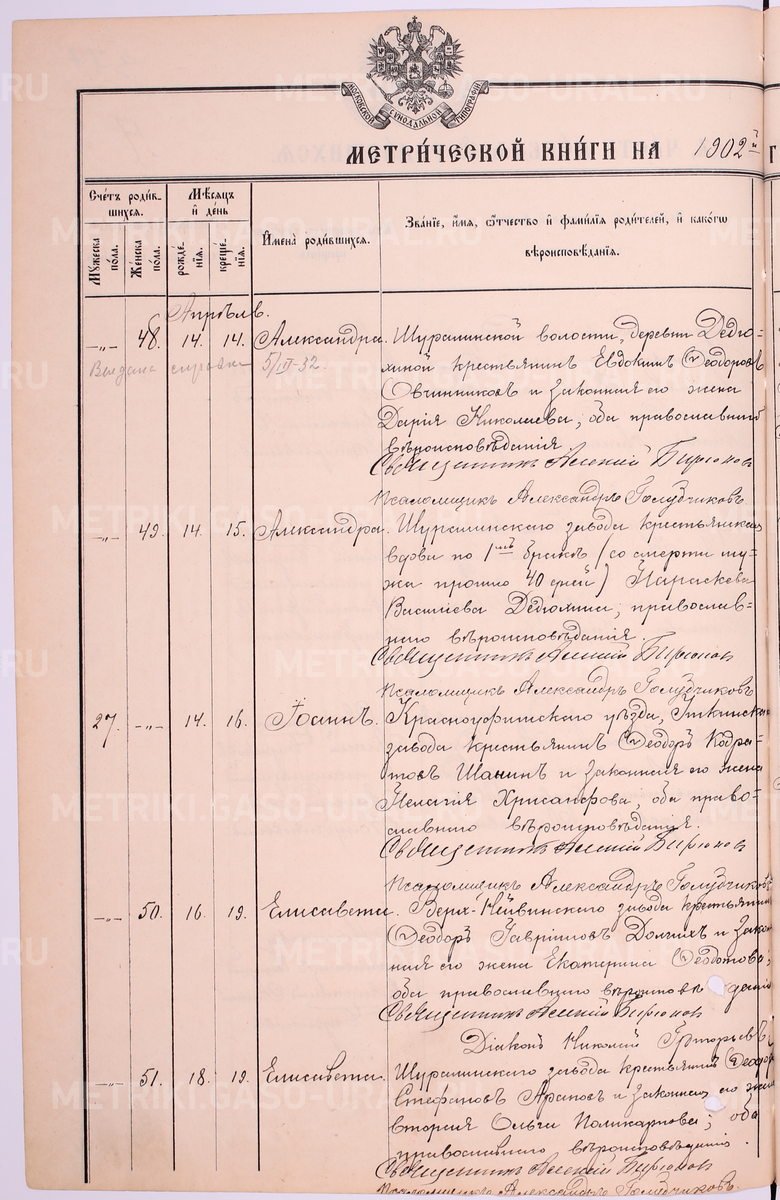 МОСКОВСКОЙ СѴНОДАЛЬНОЙ ТИПОГРАФІИ
МЕТРИ́ЧЕСКОЙ КНИ́ГИ НА 1902й
Сче́тъ роди́в-
шихся.
Мѣ́сяцъ
и҆ де́нь
Мꙋ́жеска
по́ла.
Же́нска
по́ла.
рожде́-
нїѧ.
креще́-
нїѧ.
И҆мена̀ роди́вшихся.
Зва́нїе, и҆́мѧ, ѻ҆́тчество и҆ фами́лїѧ роди́телей, и҆ како́гѡ
вѣроисповѣ́данїѧ.
Апрѣль.
-„- 48. 14. 14. Александра. Шуралинской волости, деревни Дедю-
Выдана справка 5/III-32. хиной крестьянинъ Евдокимъ Ѳеодоровъ
Овчинниковъ и законная его жена
Дарія Николаева; оба православнаго
вѣроисповѣданія.
Священникъ Алексій Бирюковъ
Псаломщикъ Александръ Голубчиковъ
-„- 49. 14. 15. Александра. Шуралинскаго завода крестьянская
вдова по 1мъ бракѣ (со смерти му-
жа прошло 40 дней) Параскева
Василіева Дедюхина; православ-
наго вѣроисповѣданія.
Священникъ Алексій Бирюковъ
Псаломщикъ Александръ Голубчиковъ
27. -„- 14. 16. Іоаннъ. Красноуфимскаго уѣзда,
завода крестьянинъ Ѳеодоръ Кодра-
товъ Шанинъ и законная его жена
Пелагія Хрисанфова; оба право-
славнаго вѣроисповѣданія.
Священникъ Алексій Бирюковъ
Псаломщикъ Александръ Голубчиковъ
-„- 50. 16. 19. Елисавета. Верх-Нейвинскаго завода крестьянинъ
Ѳеодоръ Гавріиловъ Долгихъ и закон
ная его жена Екатерина Ѳеодотова;
оба православнаго вѣроисповѣданія
Священникъ Алексій Бирюковъ
Діаконъ Николай Григорьевъ
-„- 51. 18. 19. Елисавета. Шуралинскаго завода крестьянинъ Ѳеодоръ
Стефановъ Араповъ и законная его жена
вторая Ольга Поликарпова; оба
православнаго вѣроисповѣданія.
Священникъ Алексій Бирюковъ
Псаломщикъ Александръ Голубчиковъ
METRIKI.GASO-URAL.RU